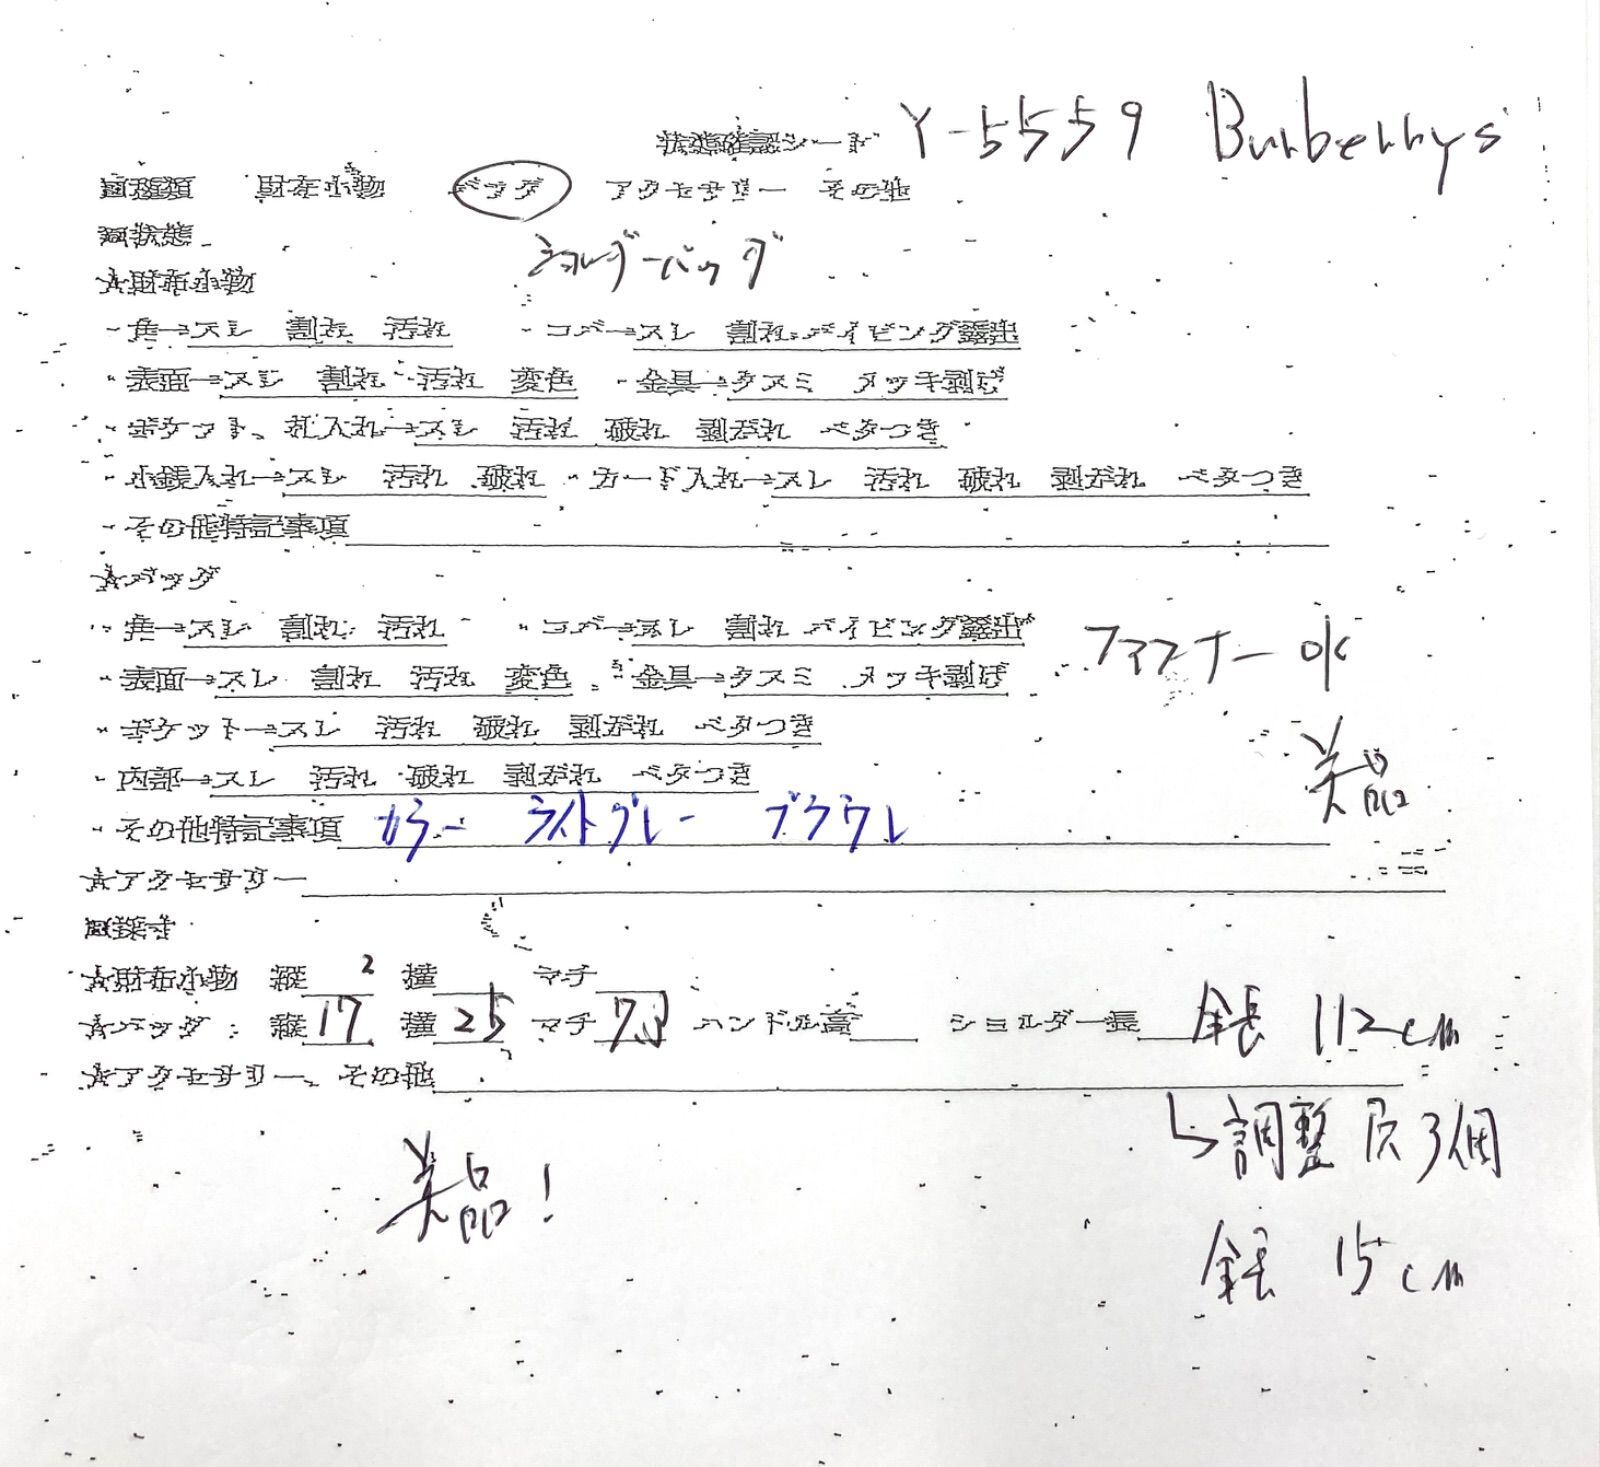 状態確認シート Y-5559 Burberrys
種類 財布小物 バッグ アクセサリー その他
状態
ショルダーバッグ
★財布小物
・角→スレ 割れ 汚れ ・コバ→スレ 割れ パイピング露出
・表面→スレ 割れ 汚れ 変色 ・金具→クスミ メッキ剥げ
・ポケット、札入れ→スレ 汚れ 破れ 剥がれ ベタつき
・小銭入れ→スレ 汚れ 破れ ・カード入れ→スレ 汚れ 破れ 剥がれ ベタつき
・その他特記事項
★バッグ
・角→スレ 割れ 汚れ ・コバ→スレ 割れ パイピング露出
ファスナー ok
・表面→スレ 割れ 汚れ 変色 ・金具→クスミ メッキ剥げ
・ポケット→スレ 汚れ 破れ 剥がれ ベタつき
美品
・内部→スレ 汚れ 破れ 剥がれ ベタつき
・その他特記事項 カラー ライトグレー ブラウン
★アクセサリー
採寸
★財布小物 縦 2 横 マチ
★バッグ: 縦 17 横 25 マチ ハンドル高 ショルダー長 全長 112cm
★アクセサリー、その他
↳調整 穴 3個
美品!
全長 15cm